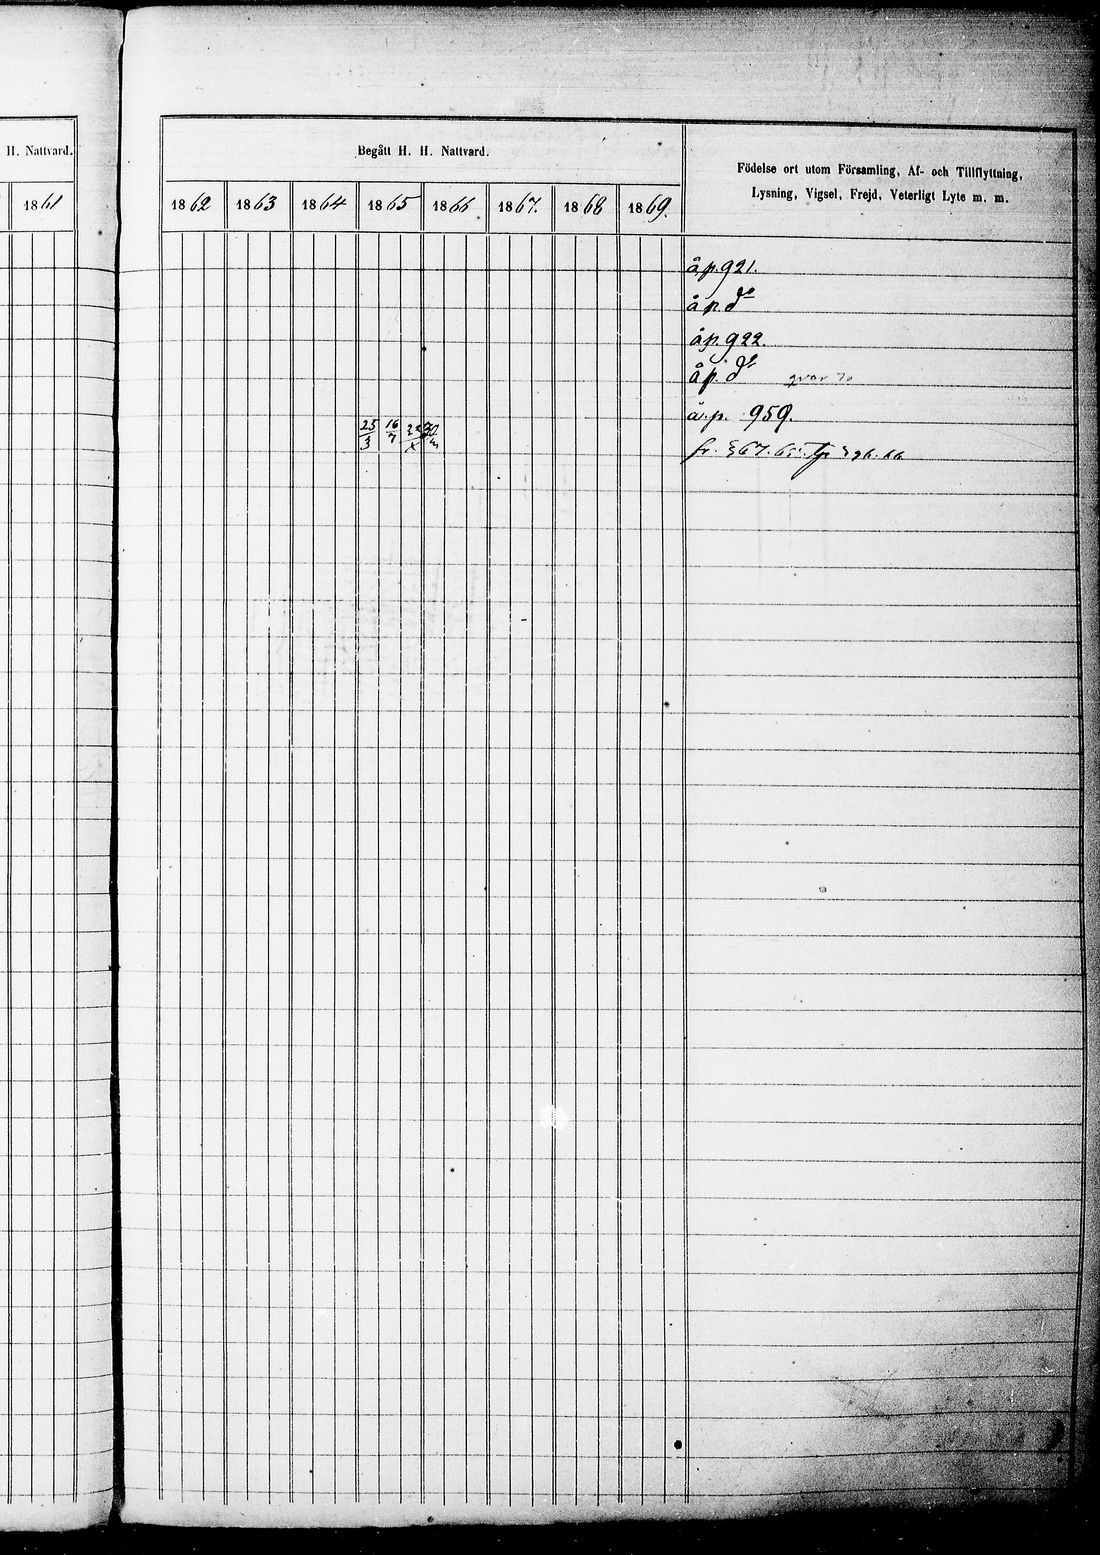 H. Nattvard.
1861
Begått H. H. Nattvard.
Födelse ort utom Församling, Af- och Tillflyttning,
Lysning, Vigsel, Frejd, Veterligt Lyte m. m.
1862 1863 1864 1865 1866 1867. 1868 1869.
å p. 921.
å p. do
å p. 922.
å p. do
å. p. 959.
25/3 16/7 22/x
fr. 67. 65.